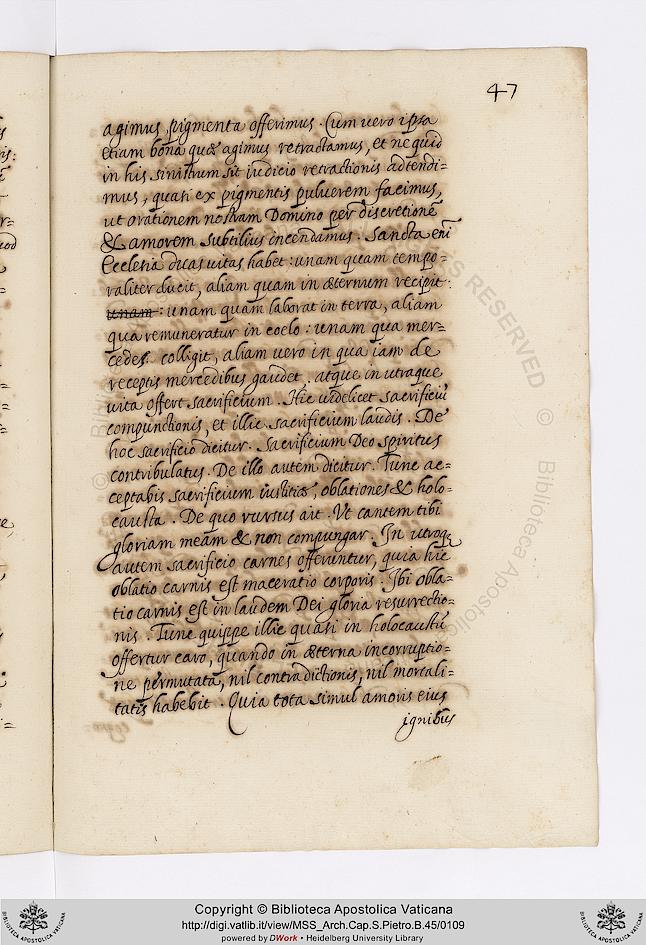 47
agimus, pigmenta offerimus. Cum uero ipsa
etiam bona quæ agimus retractamus, et ne quid
in his sinistrum sit iudicio retractionis adtendi=
mus, quasi ex pigmentis puluerem facimus,
ut orationem nostram Domino per discretionē
& amorem subtilius incendamus. Sancta eni
Ecclesia duas uitas habet: unam quam tempo=
raliter ducit, aliam quam in æternum recipit.
unam: unam quam laborat in terra, aliam
qua remuneratur in coelo: unam qua mer=
cedes colligit, aliam uero in qua iam de
receptis mercedibus gaudet, atque in utraque
uita offert sacrificium. Hic uidelicet sacrificiū
compunctionis, et illic sacrificium laudis. De
hoc sacrificio dicitur. Sacrificium Deo spiritus
contribulatus. De illo autem dicitur. Tunc ac=
ceptabis sacrificium iustitiæ, oblationes & holo=
causta. De quo rursus ait. Vt cantem tibi
gloriam meam & non compungar. In utroq;
autem sacrificio carnes offeruntur, quia hic
oblatio carnis est maceratio corporis. Ibi obla=
tio carnis est in laudem Dei gloria resurrectio=
nis. Tunc quippe illic quasi in holocaustū
offertur caro, quando in æterna incorruptio=
ne permutata, nil contradictionis, nil mortali=
tatis habebit. Quia tota simul amoris eius
ignibus
Copyright © Biblioteca Apostolica Vaticana
http://digi.vatlib.it/view/MSS_Arch.Cap.S.Pietro.B.45/0109
powered by DWork • Heidelberg University Library